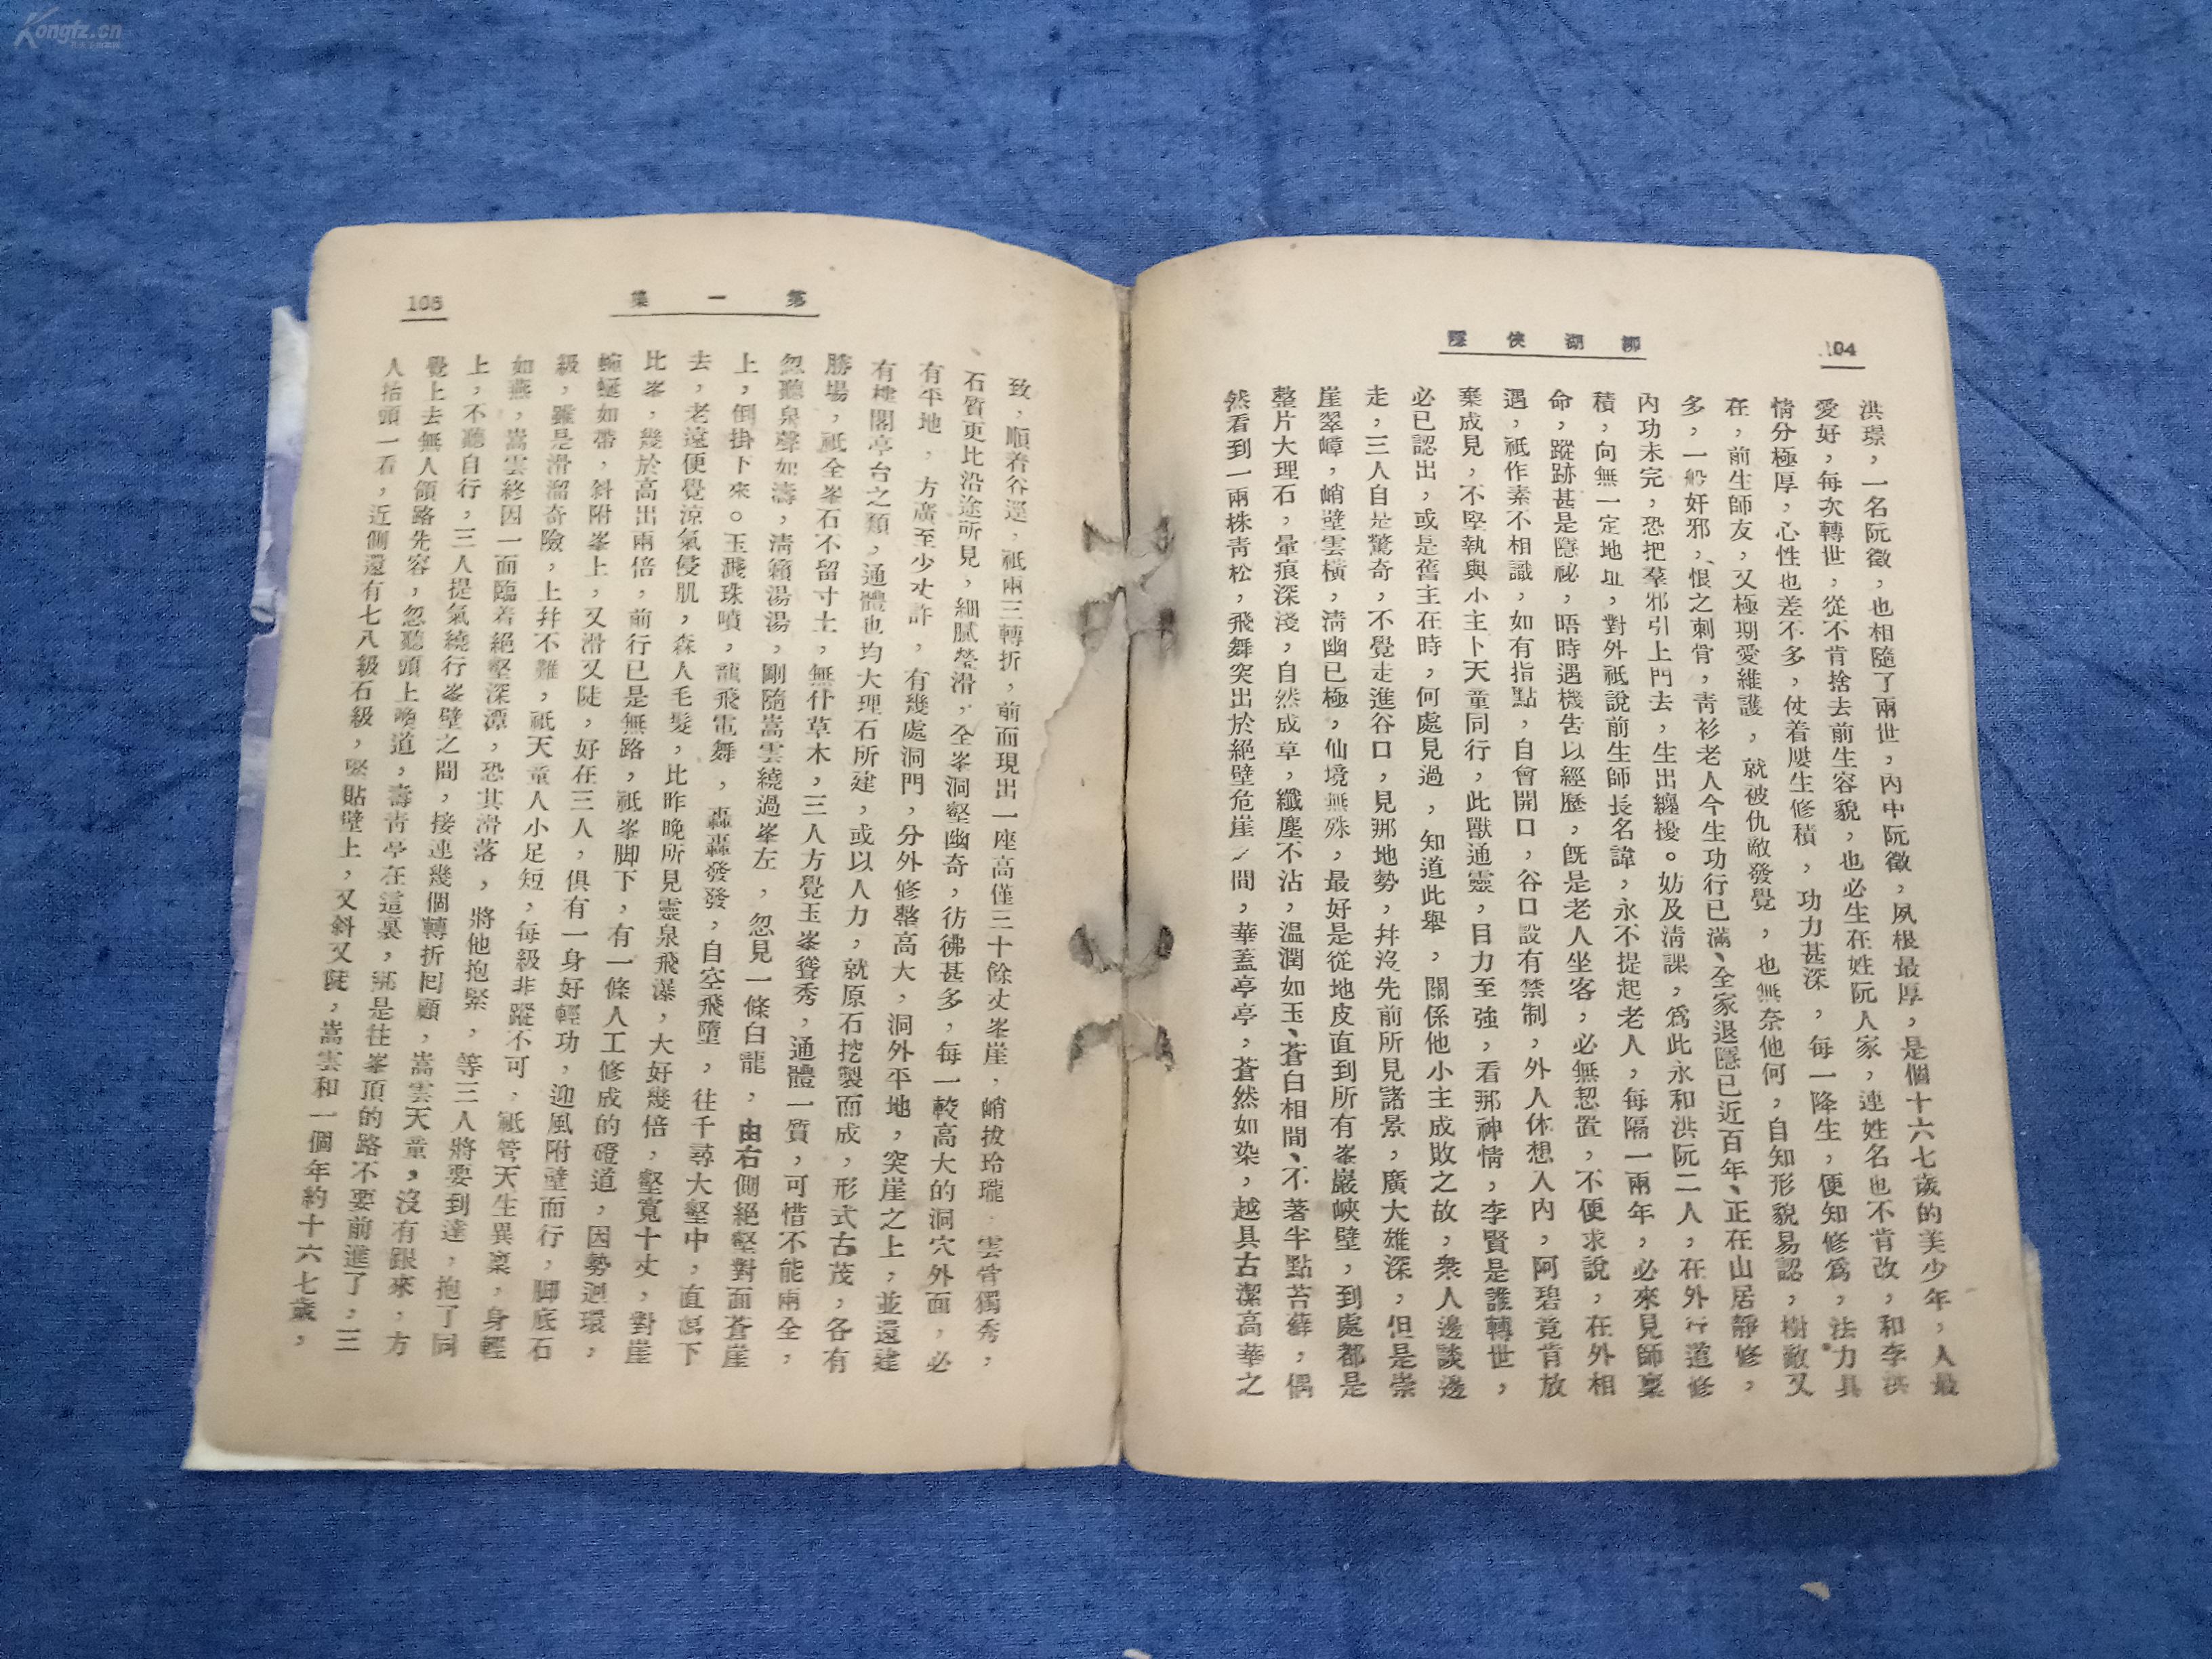 Kongfz.cn
104
柳湖俠隱
洪璟，一名阮徵，也相隨了兩世，內中阮徵，夙根最厚，是個十六七歲的美少年，人最
愛好，每次轉世，從不肯捨去前生容貌，也必生在姓阮人家，連姓名也不肯改，和李洪
情分極厚，心性也差不多，仗着屢生修積，功力甚深，每一降生，便知修爲，法力具
在，前生師友，又極期愛維護，就被仇敵發覺，也無奈他何，自知形貌易認，樹敵又
多，一般奸邪、恨之刺骨，靑衫老人今生功行已滿、全家退隱已近百年、正在山居靜修，
內功未完，恐把羣邪引上門去，生出纏擾。妨及淸課，爲此永和洪阮二人，在外行道修
積，向無一定地址，對外祇說前生師長名諱，永不提起老人，每隔一兩年，必來見師稟
命，蹤跡甚是隱祕，晤時遇機吿以經歷，旣是老人坐客，必無恝置，不便求說，在外相
遇，祇作素不相識，如有指點，自會開口，谷口設有禁制，外人休想入內，阿碧竟肯放
棄成見，不堅執與小主卜天童同行，此獸通靈，目力至強，看那神情，李賢是誰轉世，
必已認出，或是舊主在時，何處見過，知道此舉，關係他小主成敗之故，衆人邊談邊
走，三人自是驚奇，不覺走進谷口，見那地勢，幷沒先前所見諸景，廣大雄深，但是崇
崖翠嶂，峭壁雲橫，淸幽已極，仙境無殊，最好是從地皮直到所有峯巖峽壁，到處都是
整片大理石，暈痕深淺，自然成章，纖塵不沾，溫潤如玉、蒼白相間、不著半點苔蘚，偶
然看到一兩株靑松，飛舞突出於絕壁危崖之間，華蓋亭亭，蒼然如染，越具古潔高華之
第一集
105
致，順着谷逕，祇兩三轉折，前面現出一座高僅三十餘丈峯崖，峭拔玲瓏，雲骨獨秀，
石質更比沿途所見，細膩瑩滑，全峯洞壑幽奇，彷彿甚多，每一較高大的洞穴外面，必
有平地，方廣至少丈許，有幾處洞門，分外修整高大，洞外平地，突崖之上，並還建
有樓閣亭台之類，通體也均大理石所建，或以人力，就原石挖製而成，形式古茂，各有
勝場，祇全峯石不留寸土，無什草木，三人方覺玉峯聳秀，通體一質，可惜不能兩全，
忽聽泉聲如濤，淸籟湯湯，剛隨嵩雲繞過峯左，忽見一條白龍，由右側絕壑對面蒼崖
上，倒掛下來。玉濺珠噴，龍飛電舞，轟轟發發，自空飛墮，往千尋大壑中，直瀉下
去，老遠便覺涼氣侵肌，森人毛髮，比昨晚所見靈泉飛瀑，大好幾倍，壑寬十丈，對崖
比峯，幾於高出兩倍，前行已是無路，祇峯脚下，有一條人工修成的磴道，因勢迴環，
蜿蜒如帶，斜附峯上，又滑又陡，好在三人，俱有一身好輕功，迎風附壁而行，脚底石
級，雖是滑溜奇險，上幷不難，祇天童人小足短，每級非蹤不可，祇管天生異稟，身輕
如燕，嵩雲終因一面臨着絕壑深潭，恐其滑落，將他抱緊，等三人將要到達，抱了同
上，不聽自行，三人提氣繞行峯壁之間，接連幾個轉折囘顧，嵩雲天童，沒有跟來，方
覺上去無人領路先容，忽聽頭上喚道，壽靑亭在這裏，那是往峯頂的路不要前進了，三
人抬頭一看，近側還有七八級石級，緊貼壁上，又斜又陡，嵩雲和一個年約十六七歲，